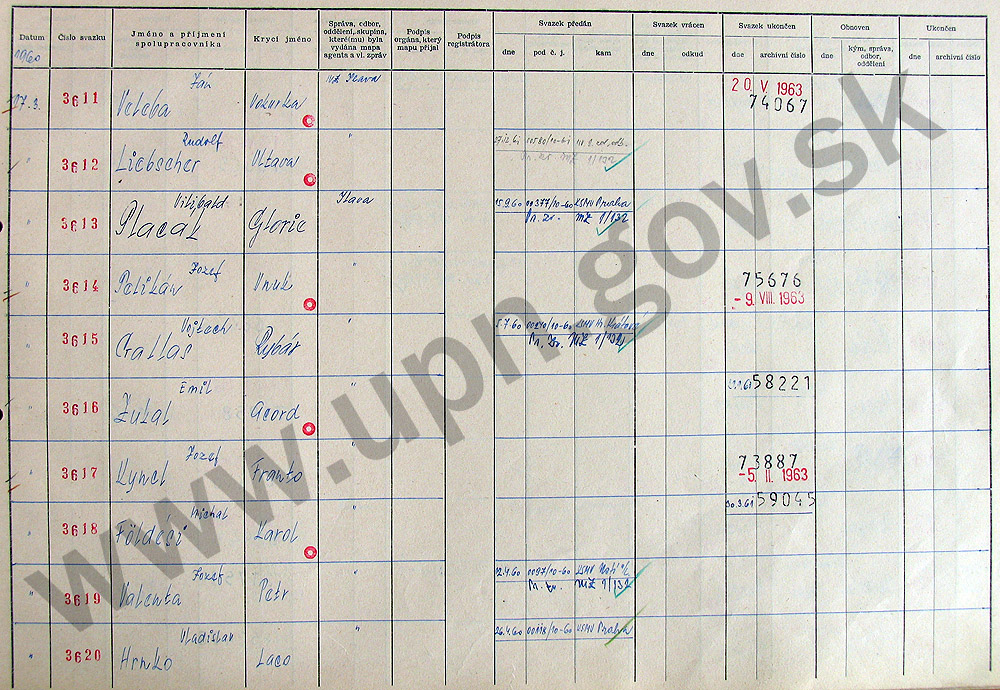 Datum
Číslo svazku
Jméno a příjmení spolupracovníka
Krycí jméno
Správa, odbor, oddělení, skupina, které(mu) byla vydána mapa agenta a vl. zpráv
Podpis orgána, který mapu přijal
Podpis registrátora
Svazek předán
dne
pod č. j.
kam
Svazek vrácen
dne
odkud
Svazek ukončen
dne
archivní číslo
Obnoven
dne
kým, správa, odbor, oddělení
Ukončen
dne
archivní číslo
1960
17.3. 3611 Ján Veleba 20. V. 1963 74067
" 3612 Rudolf Liebscher Vltava "
" 3613 Vilibald Placak Glorie Ilava 15.9.60 00377/10-60 KSMV Praha
MZ 1/132
" 3614 Jozef Pelikán Vnuk " 75676
- 9. VIII. 1963
" 3615 Vojtech Crallas Rybár " 5.7.60
MZ 1/132
" 3616 Emil Zulal Acord " 58221
" 3617 Jozef Kyncl Franto " 73887
- 5. II. 1963
" 3618 Michal Földesi Karol " 30.3.61 59045
" 3619 Jozef Valenta Petr " 12.4.60 0097/10-60 KSMV
MZ 1/132
" 3620 Vladislav Hrnko Laco " 26.4.60 00118/10-60 KSMV Praha
www.upn.gov.sk